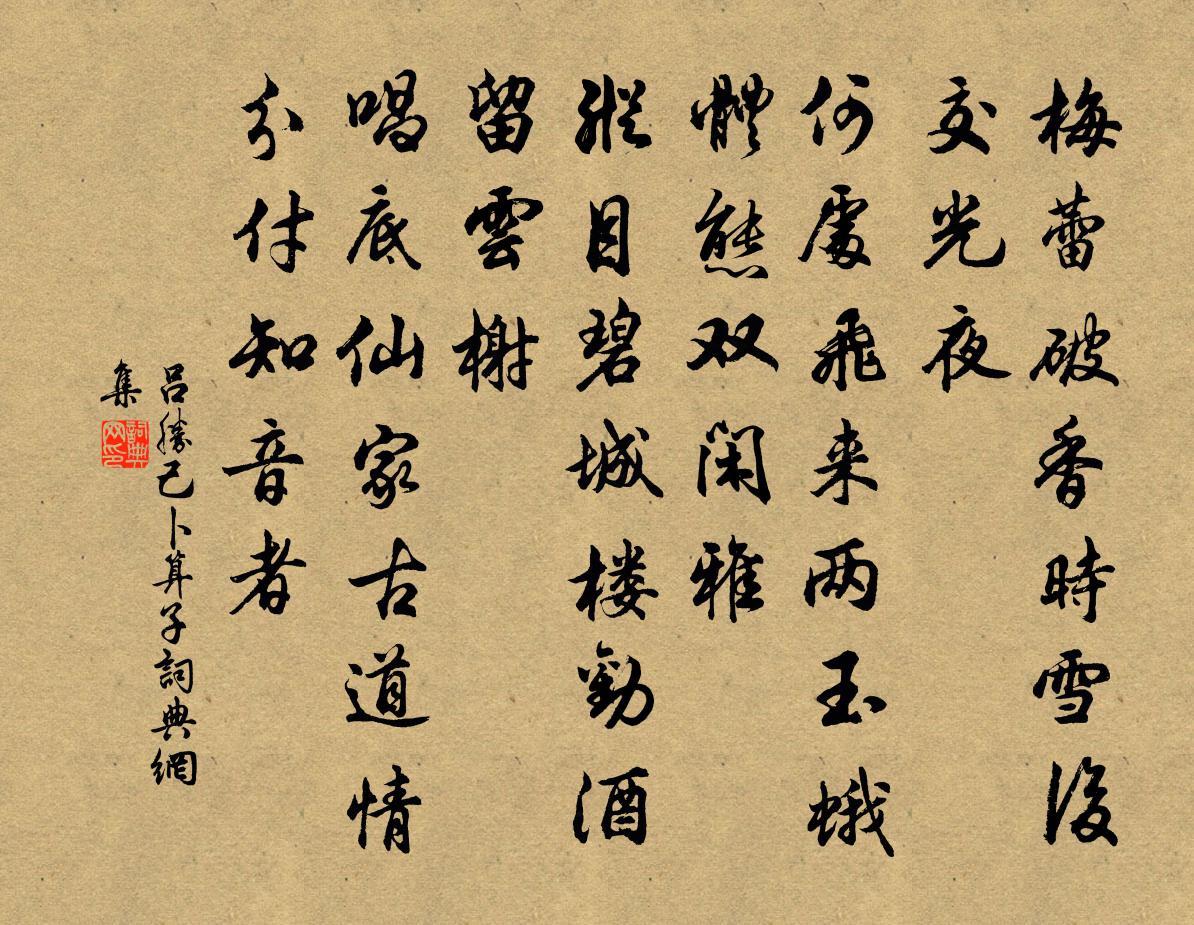 梅蕾破香時雪後
交光夜
何處飛来两玉蛾
體態双閑雅
縱目碧城楼勸酒
留雲榭
唱底仙家古道情
分付知音者
吕勝己卜算子詞典網
集
詞典網印